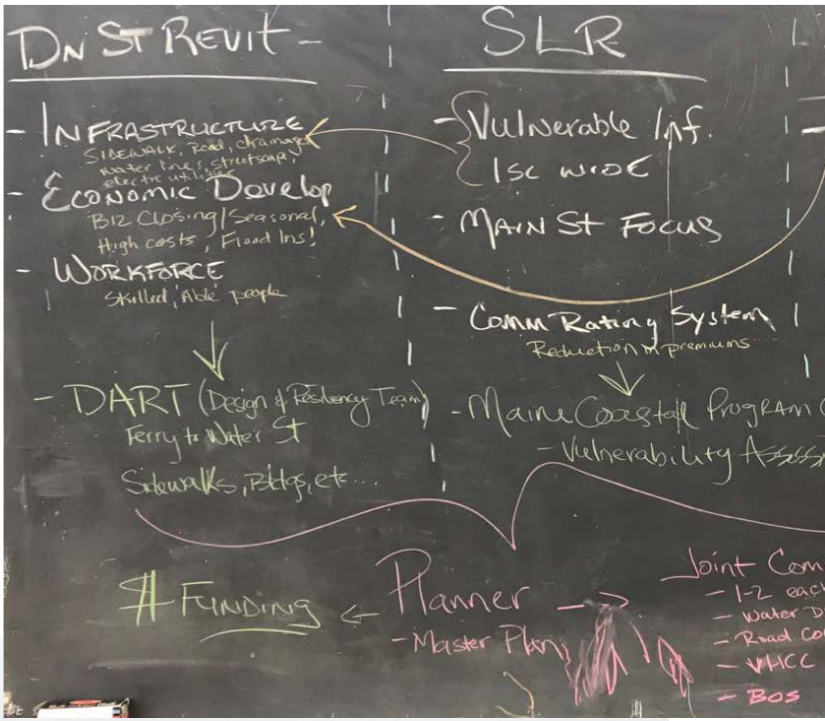 DN ST REVIT -
- INFRASTRUCTURE
SIDEWALK, Road, drainage
water lines, streetscape,
electric utilities
- ECONOMIC Develop
BIZ Closing/Seasonal,
High costs, Flood Ins!
- WORKFORCE
Skilled, 'Able' people
- DART (Design & Resiliency Team)
Ferry to Water St
Sidewalks, Bldgs, etc...
SLR
- Vulnerable Inf.
ISC WIDE
- MAIN ST FOCUS
- Comm Rating System
Reduction in premiums....
- Maine Coastal PROGRAM (
- Vulnerability Assss
$ FUNDING
Planner
- Master Plan
Joint Com
- 1-2 each
- Water Di
- Road Co
- VHCC
- BOS